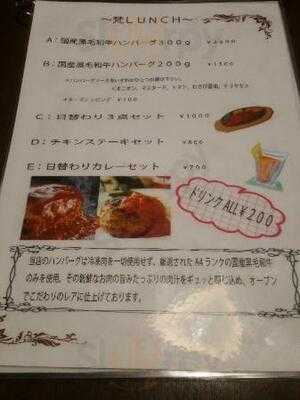 ～梵LUNCH～
A：国産黒毛和牛ハンバーグ300g
B：国産黒毛和牛ハンバーグ200g ￥1500
C：日替わり3点セット ￥1000
D：チキンステーキセット ￥800
E：日替わりカレーセット ￥700
ドリンク ALL￥200
当店のハンバーグは冷凍肉を一切使用せず、厳選されたA4ランクの国産黒毛和牛
のみを使用、その新鮮なお肉の旨みたっぷりの肉汁をギュッと閉じ込め、オーブン
でこだわりのレアに仕上げております。